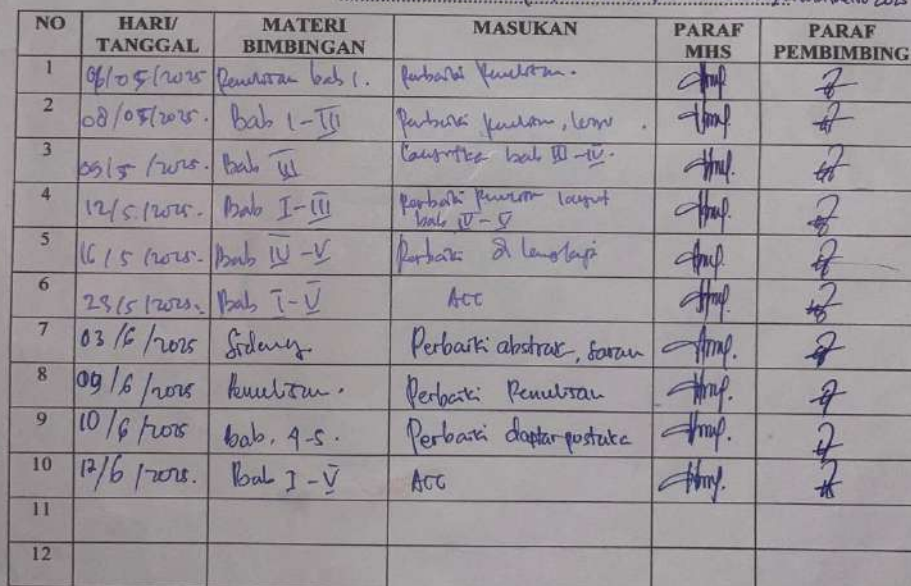 NO HARI/ TANGGAL MATERI BIMBINGAN MASUKAN PARAF MHS PARAF PEMBIMBING
1 06/05/2025 Penulisan bab 1. Perbaiki Penulisan.
2 08/05/2025. Bab I-III Perbaiki penulisan,
3 09/5/2025. Bab III bab III-IV.
4 12/5/2025. Bab I-III Perbaiki penulisan lanjut
bab IV-V
5 16/5/2025. Bab IV-V Perbaiki & lengkapi
6 23/5/2025. Bab I-V ACC
7 03/6/2025 Sidang Perbaiki abstrak, saran
8 09/6/2025 Penulisan. Perbaiki Penulisan
9 10/6/2025 bab. 4-5. Perbaiki daptar pustaka
10 12/6/2025. Bab I-V ACC
11
12